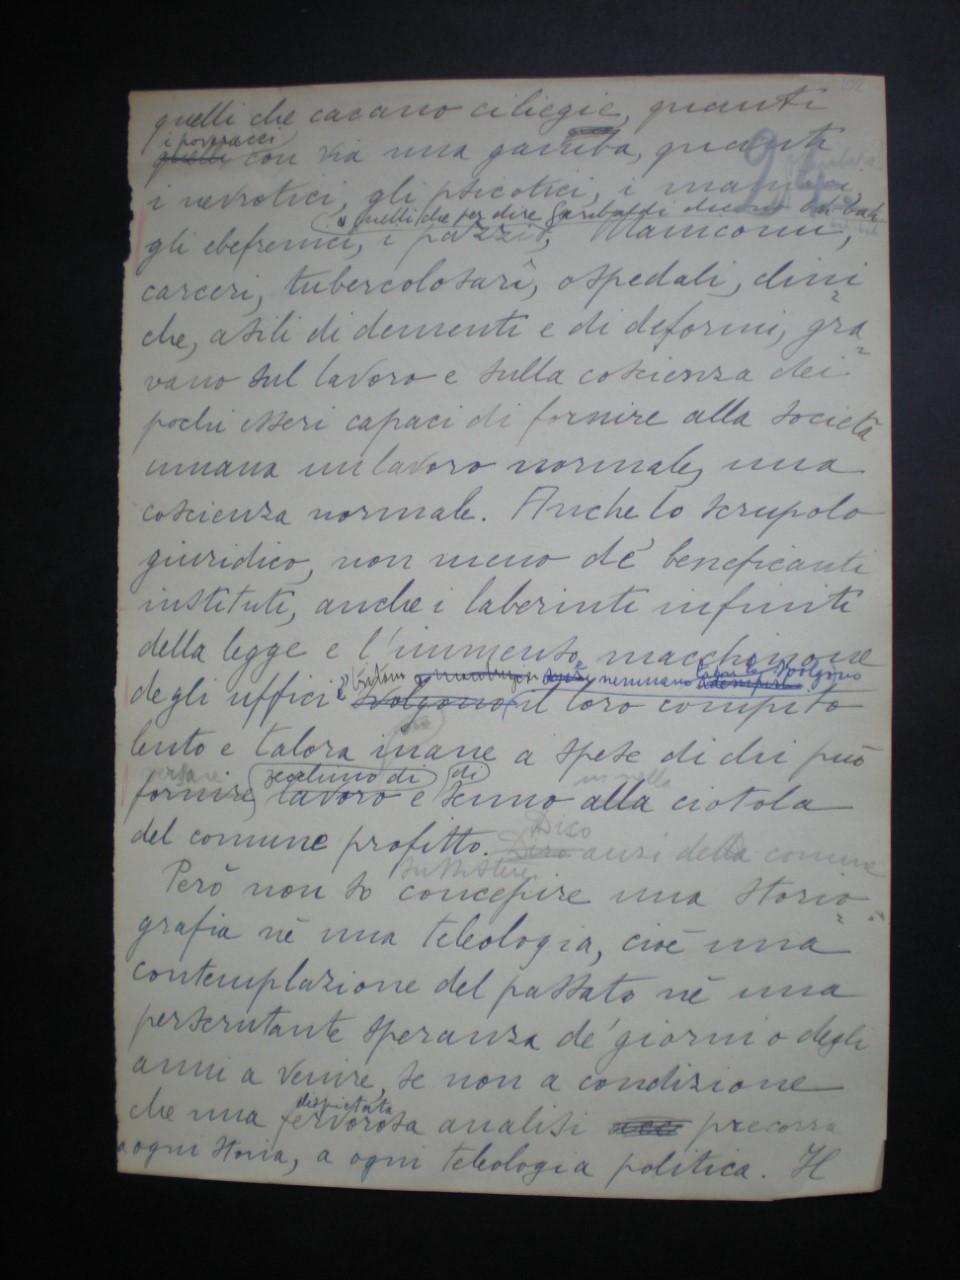 102
quelli che cacano ciliegie, quanti
i poveracci
quelli con via una gamba, quanta
24
i nevrotici, gli psicotici, i maniaci,
quelli che per dire Garibaldi dicono
gli ebefrenici, i pazzi, Manicomi,
carceri, tubercolosarî, ospedali, clini=
che, asili di dementi e di deformi, gra=
vano sul lavoro e sulla coscienza dei
pochi esseri capaci di fornire alla società
umana un lavoro normale, una
coscienza normale. Anche lo scrupolo
giuridico, non meno de' beneficanti
instituti, anche i laberinti infiniti
della legge e l'immenso macchinone
nemmeno svolgono
degli uffici svolgono il loro compito
lento e talora inane a spese di chi può
versare
zecchino di di
in nella
fornire lavoro e senno alla ciotola
Dico
del comune profitto. anzi della comune
sussistere
Però non so concepire una storio=
grafia nè una teleologia, cioè una
contemplazione del passato nè una
perscrutante speranza de' giorni o degli
anni a venire, se non a condizione
dispietata
che una fervorosa analisi precorra
a ogni storia, a ogni teleologia politica. Il